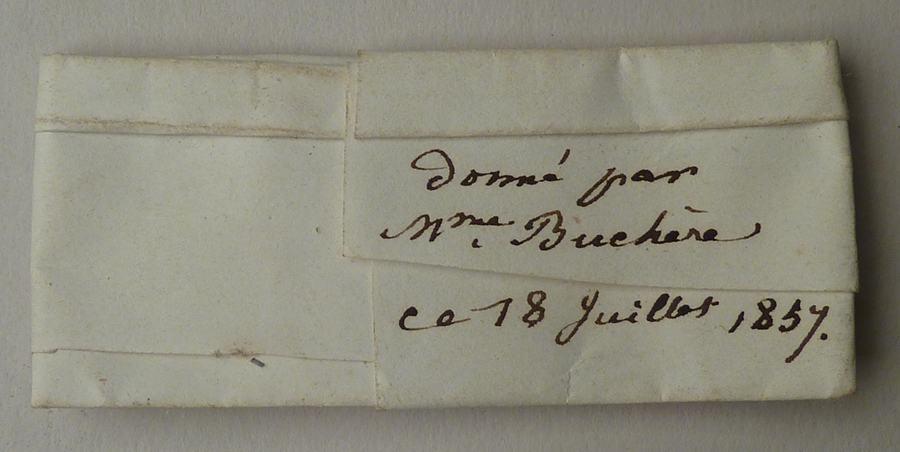 donné par
Mme. Buchère
ce 18 Juillet 1857.